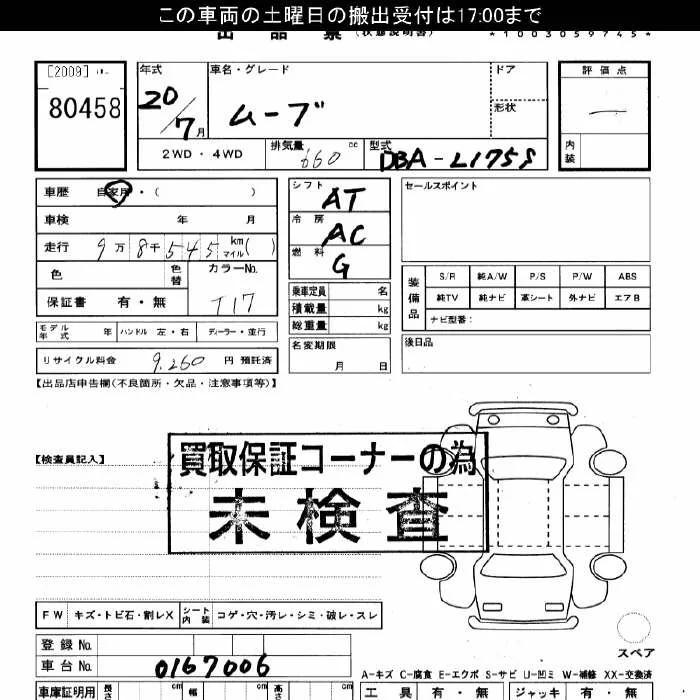 この車両の土曜日の搬出受付は17:00まで
出品票 (状態説明書) *1003059745*
[2009]
80458
年式 車名・グレード ドア 評価点
20/7月 ムーブ 形状 ―
2WD・4WD 排気量 660 cc 型式 DBA-L175S 内装
車歴 自家用・( )
シフト AT
セールスポイント
車検 年 月
冷房 AC
走行 9万8千545 km マイル( )
燃料 G
色 色替 カラーNo. T17
保証書 有・無
乗車定員 名
積載量 kg
総重量 kg
装備品 S/R 純A/W P/S P/W ABS
純TV 純ナビ 革シート 外ナビ エアB
ナビ型番:
モデル年式 年 ハンドル 左・右 ディーラー・並行
名変期限 月 日
後日品
リサイクル料金 9,260 円 預託済
【出品店申告欄(不良箇所・欠品・注意事項等)】
【検査員記入】
買取保証コーナーの為
未検査
FW キズ・トビ石・割レX シート内装 コゲ・穴・汚レ・シミ・破レ・スレ
登録No.
車台No. 0167006
スペア
A-キズ C-腐食 E-エクボ S-サビ U-凹ミ W-補修 XX-交換済
車庫証明用 長さ cm 幅 cm 高さ cm
工具 有・無 ジャッキ 有・無